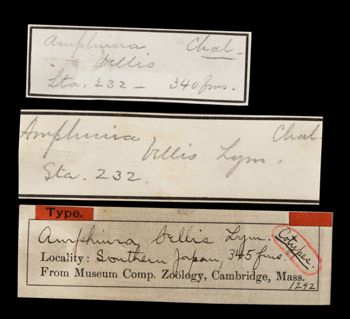 Amphiura Chal.
bellis
Sta. 232 — 340 fms.
Amphiura Chal.
bellis Lym.
Sta. 232.
Type.
Amphiura bellis Lym. Cotypes.
Locality: Southern Japan, 345 fms.
From Museum Comp. Zoölogy, Cambridge, Mass.
1292